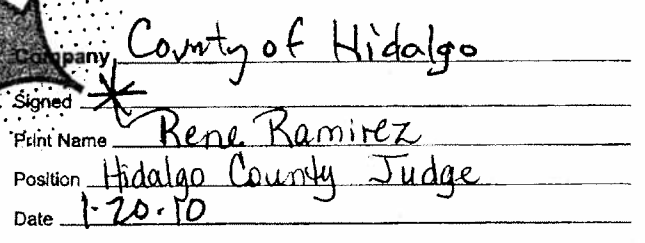 Company County of Hidalgo
Signed
Print Name Rene Ramirez
Position Hidalgo County Judge
Date 1-20-10